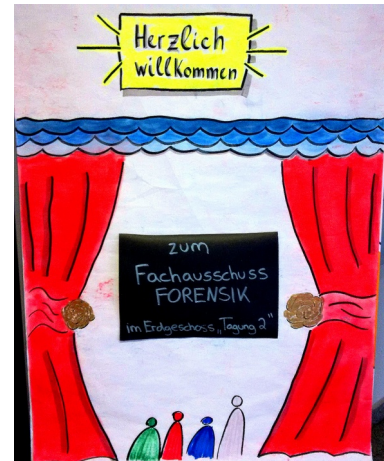 Herzlich
willkommen
zum
Fachausschuss
FORENSIK
im Erdgeschoss „Tagung 2"